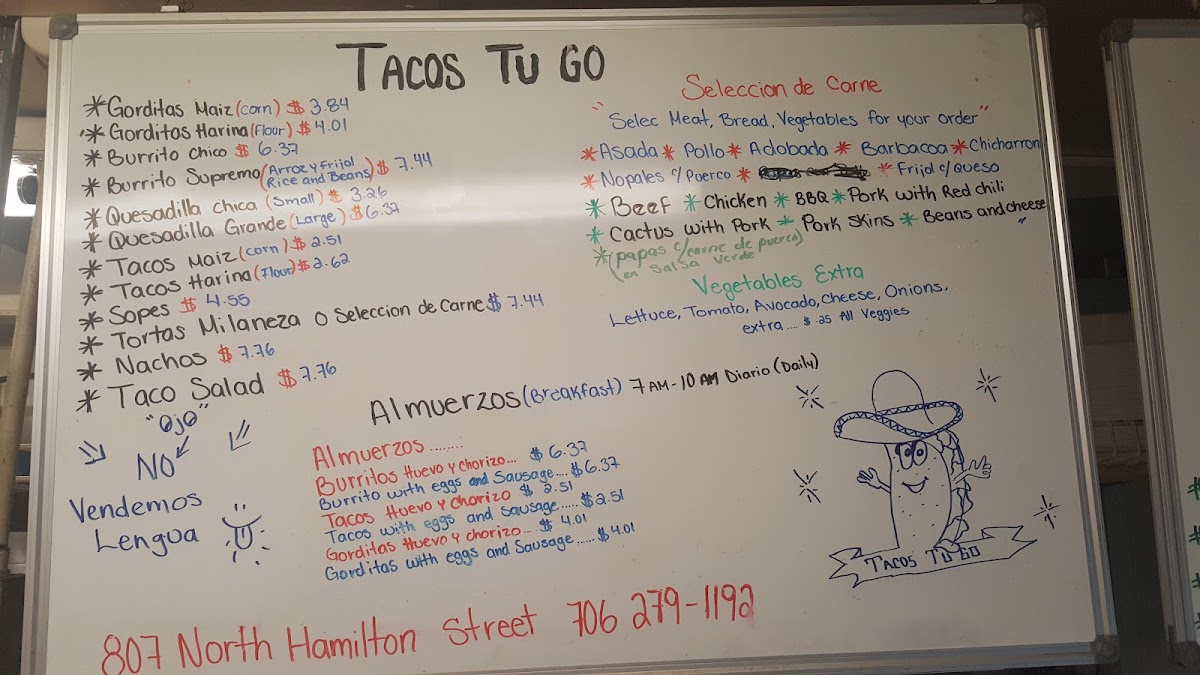 TACOS TU GO
* Gorditas Maiz (corn) $ 3.84
* Gorditas Harina (Flour) $ 4.01
* Burrito Chico $ 6.37
* Burrito Supremo (Arroz y Frijol Rice and Beans) $ 7.44
* Quesadilla chica (Small) $ 3.26
* Quesadilla Grande (Large) $ 6.37
* Tacos Maiz (corn) $ 2.51
* Tacos Harina (Flour) $ 2.62
* Sopes $ 4.55
* Tortas Milaneza o Seleccion de Carne $ 7.44
* Nachos $ 7.76
* Taco Salad $ 7.76
Seleccion de Carne
"Selec Meat, Bread, Vegetables for your order"
* Asada * Pollo * Adobada * Barbacoa * Chicharron
* Nopales c/ Puerco * * Frijol c/Queso
* Beef * Chicken * BBQ * Pork with Red chili
* Cactus with Pork * Pork Skins * Beans and cheese"
* papas c/carne de puerco
(en Salsa Verde)
Vegetables Extra
Lettuce, Tomato, Avocado, Cheese, Onions.
extra.... $ .25 All Veggies
"Ojo"
NO
Vendemos
Lengua
Almuerzos (Breakfast) 7 AM - 10 AM Diario (Daily)
Almuerzos........
Burritos Huevo y Chorizo... $ 6.37
Burrito with eggs and Sausage.... $6.37
Tacos Huevo y Chorizo $ 2.51
Tacos with eggs and Sausage..... $2.51
Gorditas Huevo y chorizo... $ 4.01
Gorditas with eggs and Sausage..... $4.01
TACOS TU GO
807 North Hamilton Street 706 279-1192